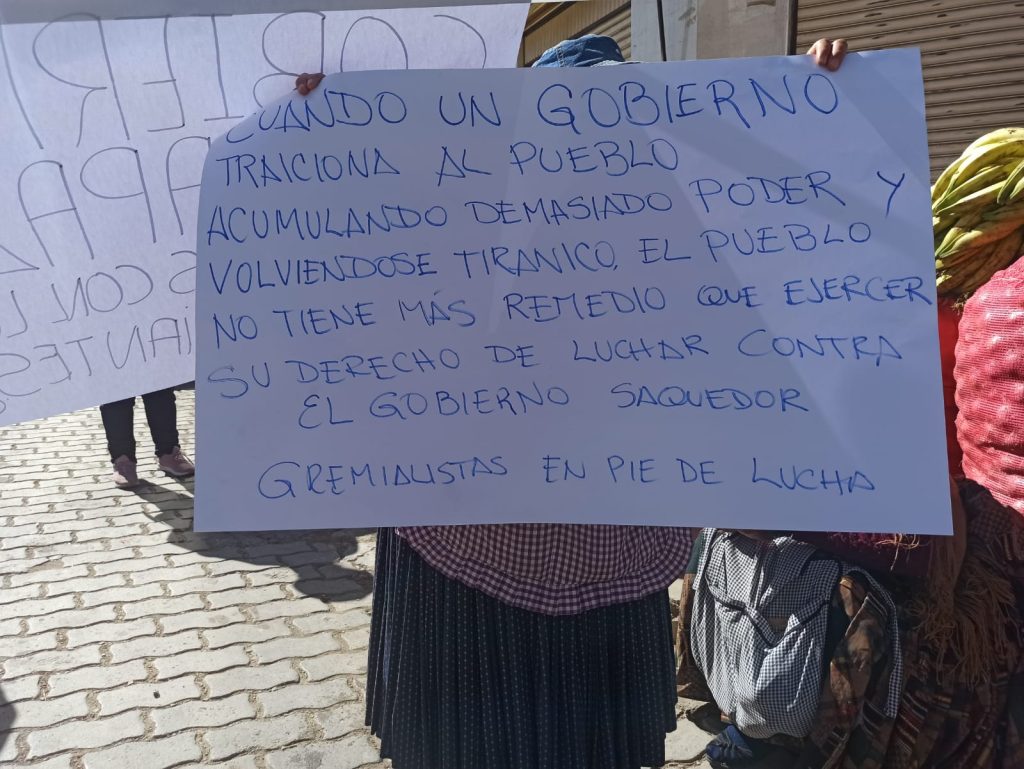 CUANDO UN GOBIERNO
TRAICIONA AL PUEBLO
ACUMULANDO DEMASIADO PODER Y
VOLVIENDOSE TIRANICO, EL PUEBLO
NO TIENE MÁS REMEDIO QUE EJERCER
SU DERECHO DE LUCHAR CONTRA
EL GOBIERNO SAQUEDOR
GREMIALISTAS EN PIE DE LUCHA